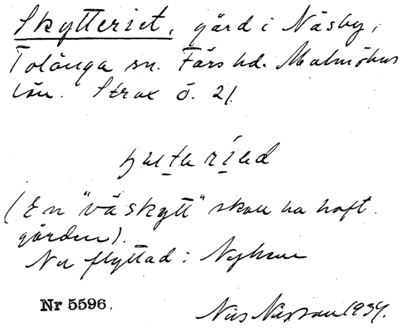 Skytteriet, gård i Näsby,
Tolånga sn. Färs hd. Malmöhus
län. Strax ö. 21.
(En "våskytt" skall ha haft
gården).
Nu flyttad:
Nr 5596.
Nils Nilsson 1934.